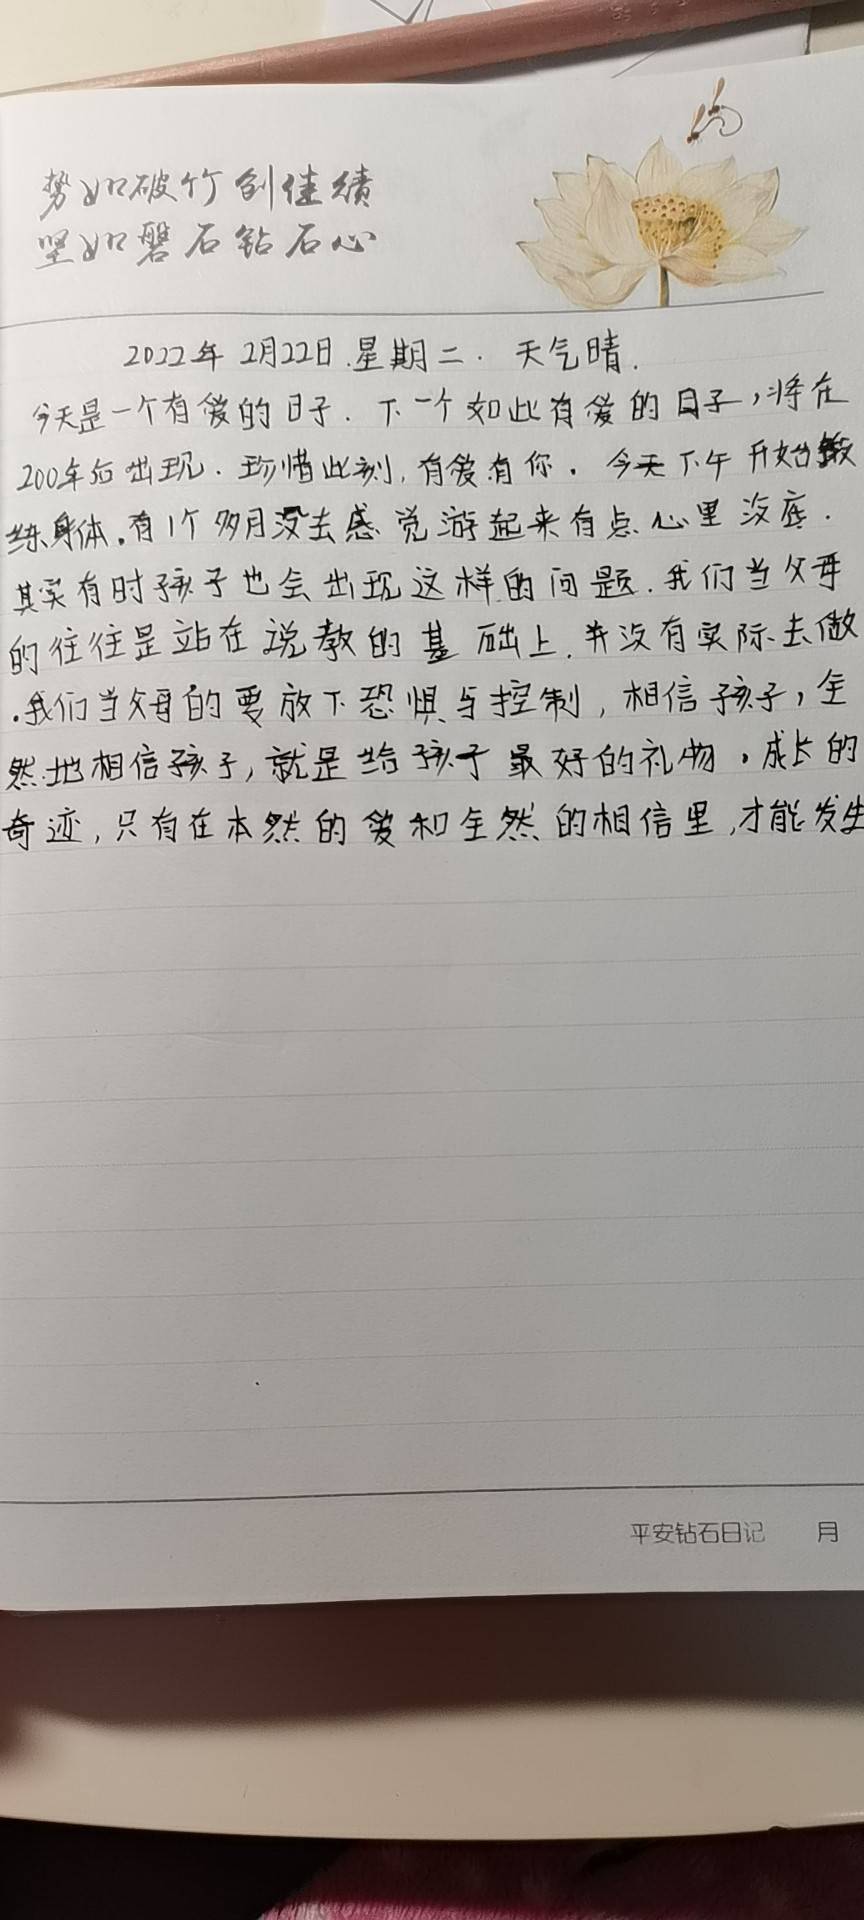 势如破竹创佳绩
坚如磐石钻石心
2022年 2月22日.星期二. 天气晴.
今天是一个有爱的日子. 下一个如此有爱的日子,将在
200年后出现. 珍惜此刻,有爱有你. 今天下午开始锻
练身体.有1个多月没去感觉游起来有点心里没底.
其实有时孩子也会出现这样的问题.我们当父母
的往往是站在说教的基础上.并没有实际去做
.我们当父母的要放下恐惧与控制,相信孩子,全
然地相信孩子,就是给孩子最好的礼物.成长的
奇迹,只有在本然的爱和全然的相信里,才能发生
平安钻石日记 月